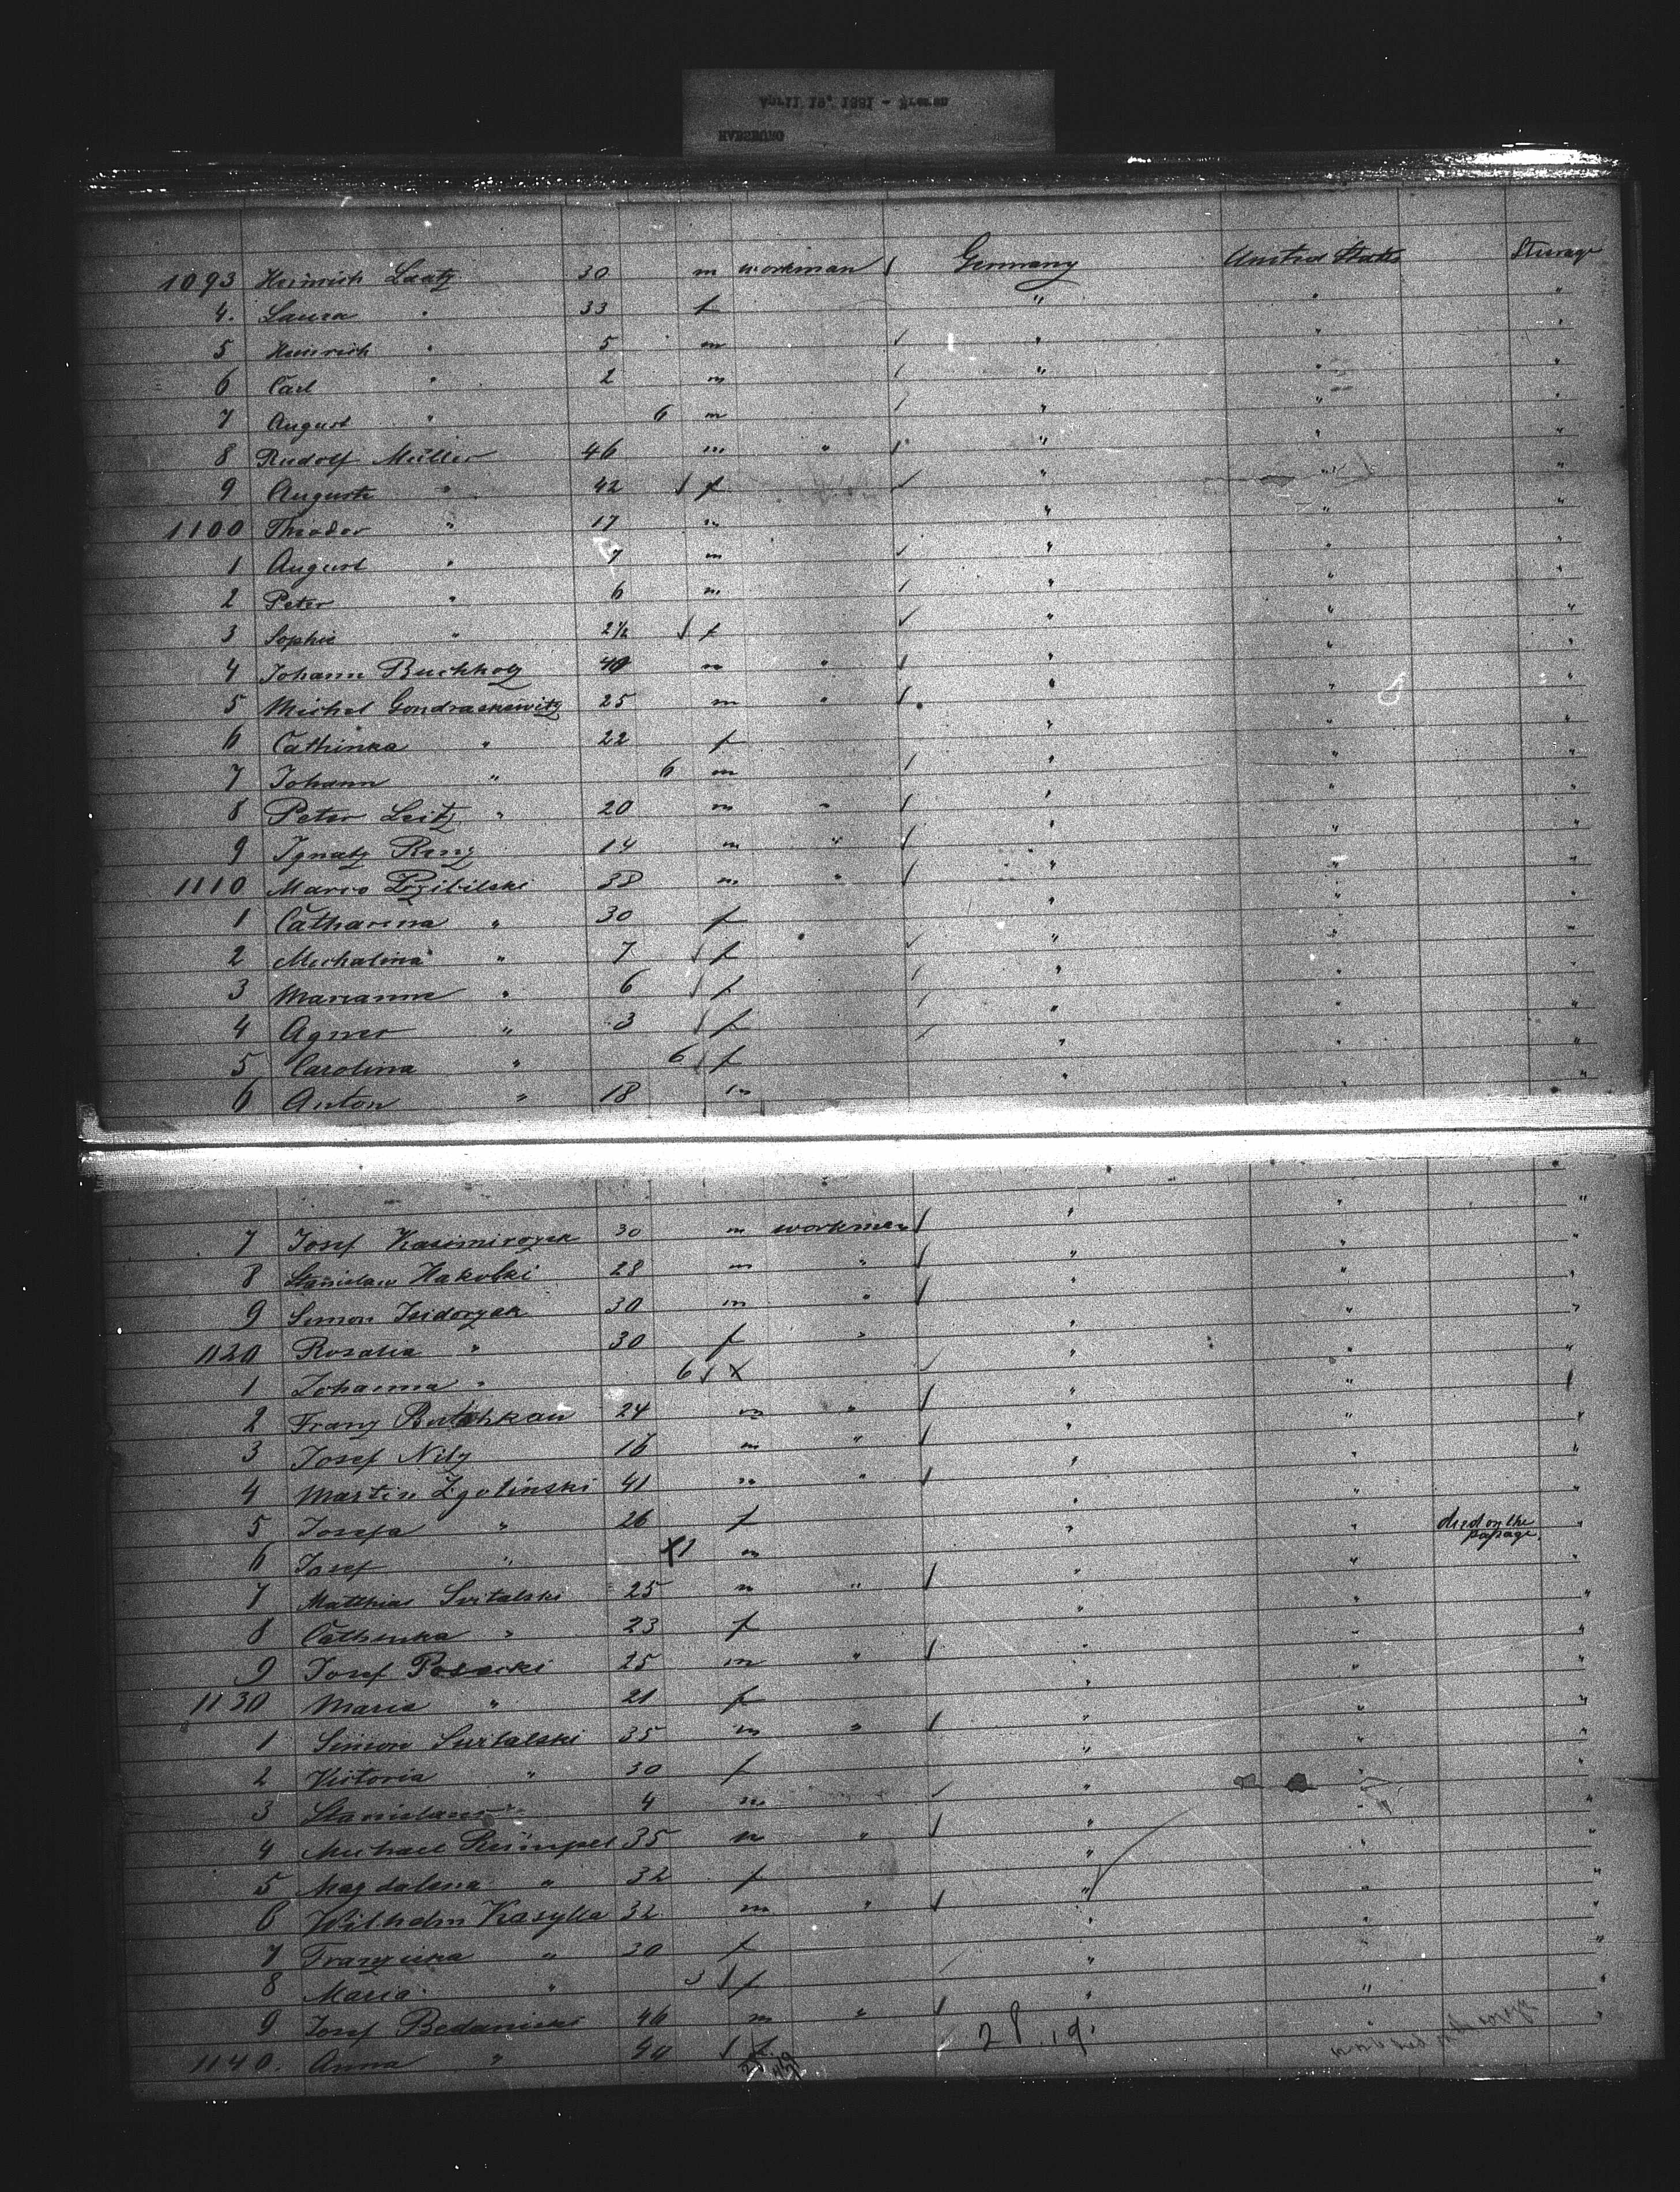 1093 Heinrich Laatz 30 m workman Germany United States Steerage
4. Laura " 33 f " " "
5 Heinrich " 5 m " " "
6 Carl " 2 m " " "
7 August " 6 m " " "
8 Rudolf Müller 46 m " " " "
9 Auguste " 42 f " " "
1100 Theodor " 17 m " " "
1 August " 7 m " " "
2 Peter " 6 m " " "
3 Sophie " 2½ f " " "
4 Johann Buchholz 40 m " " " "
5 Michel Gondraskewitz 25 m " " " "
6 Cathinka " 22 f " " "
7 Johann " 6 m " " "
8 Peter Leitz " 20 m " " " "
9 Ignatz Renz 14 m " " " "
1110 Marco Przibilski 38 m " " " "
1 Catharina " 30 f " " "
2 Michalina " 7 f " " "
3 Marianna " 6 f " " "
4 Agnes " 3 f " " "
5 Carolina " 6 f " " "
6 Anton " 18 m " " "
7 Josef Kasimirozek 30 m workman " " "
8 Stanislaw Hakolski 28 m " " " "
9 Simon Isidorzak 30 m " " " "
1120 Rosalia " 30 f " " " "
1 Johanna " 6 " " "
2 Franz 24 m " " "
3 Josef Nilz 16 m " " " "
4 Martin Zgolinski 41 m " " " "
5 Josefa " 26 f " " "
6 Josef " X1 m " " died on the passage. "
7 Matthias Svitalski 25 m " " " "
8 Cathinka " 23 f " " "
9 Josef Posacki 25 m " " " "
1130 Maria " 21 f " " "
1 Simon Switalski 35 m " " " "
2 Victoria " 30 f " " "
3 Stanislaus " 4 m " " "
4 Michael Rümpel 35 m " " " "
5 Magdalena " 32 f " " "
6 Wilhelm Kasylla 32 m " " " "
7 Franziska " 30 f " " "
8 Maria " 3 f " " "
9 Josef Bedanicki 46 m " " " "
1140. Anna " 40 f
28.19.